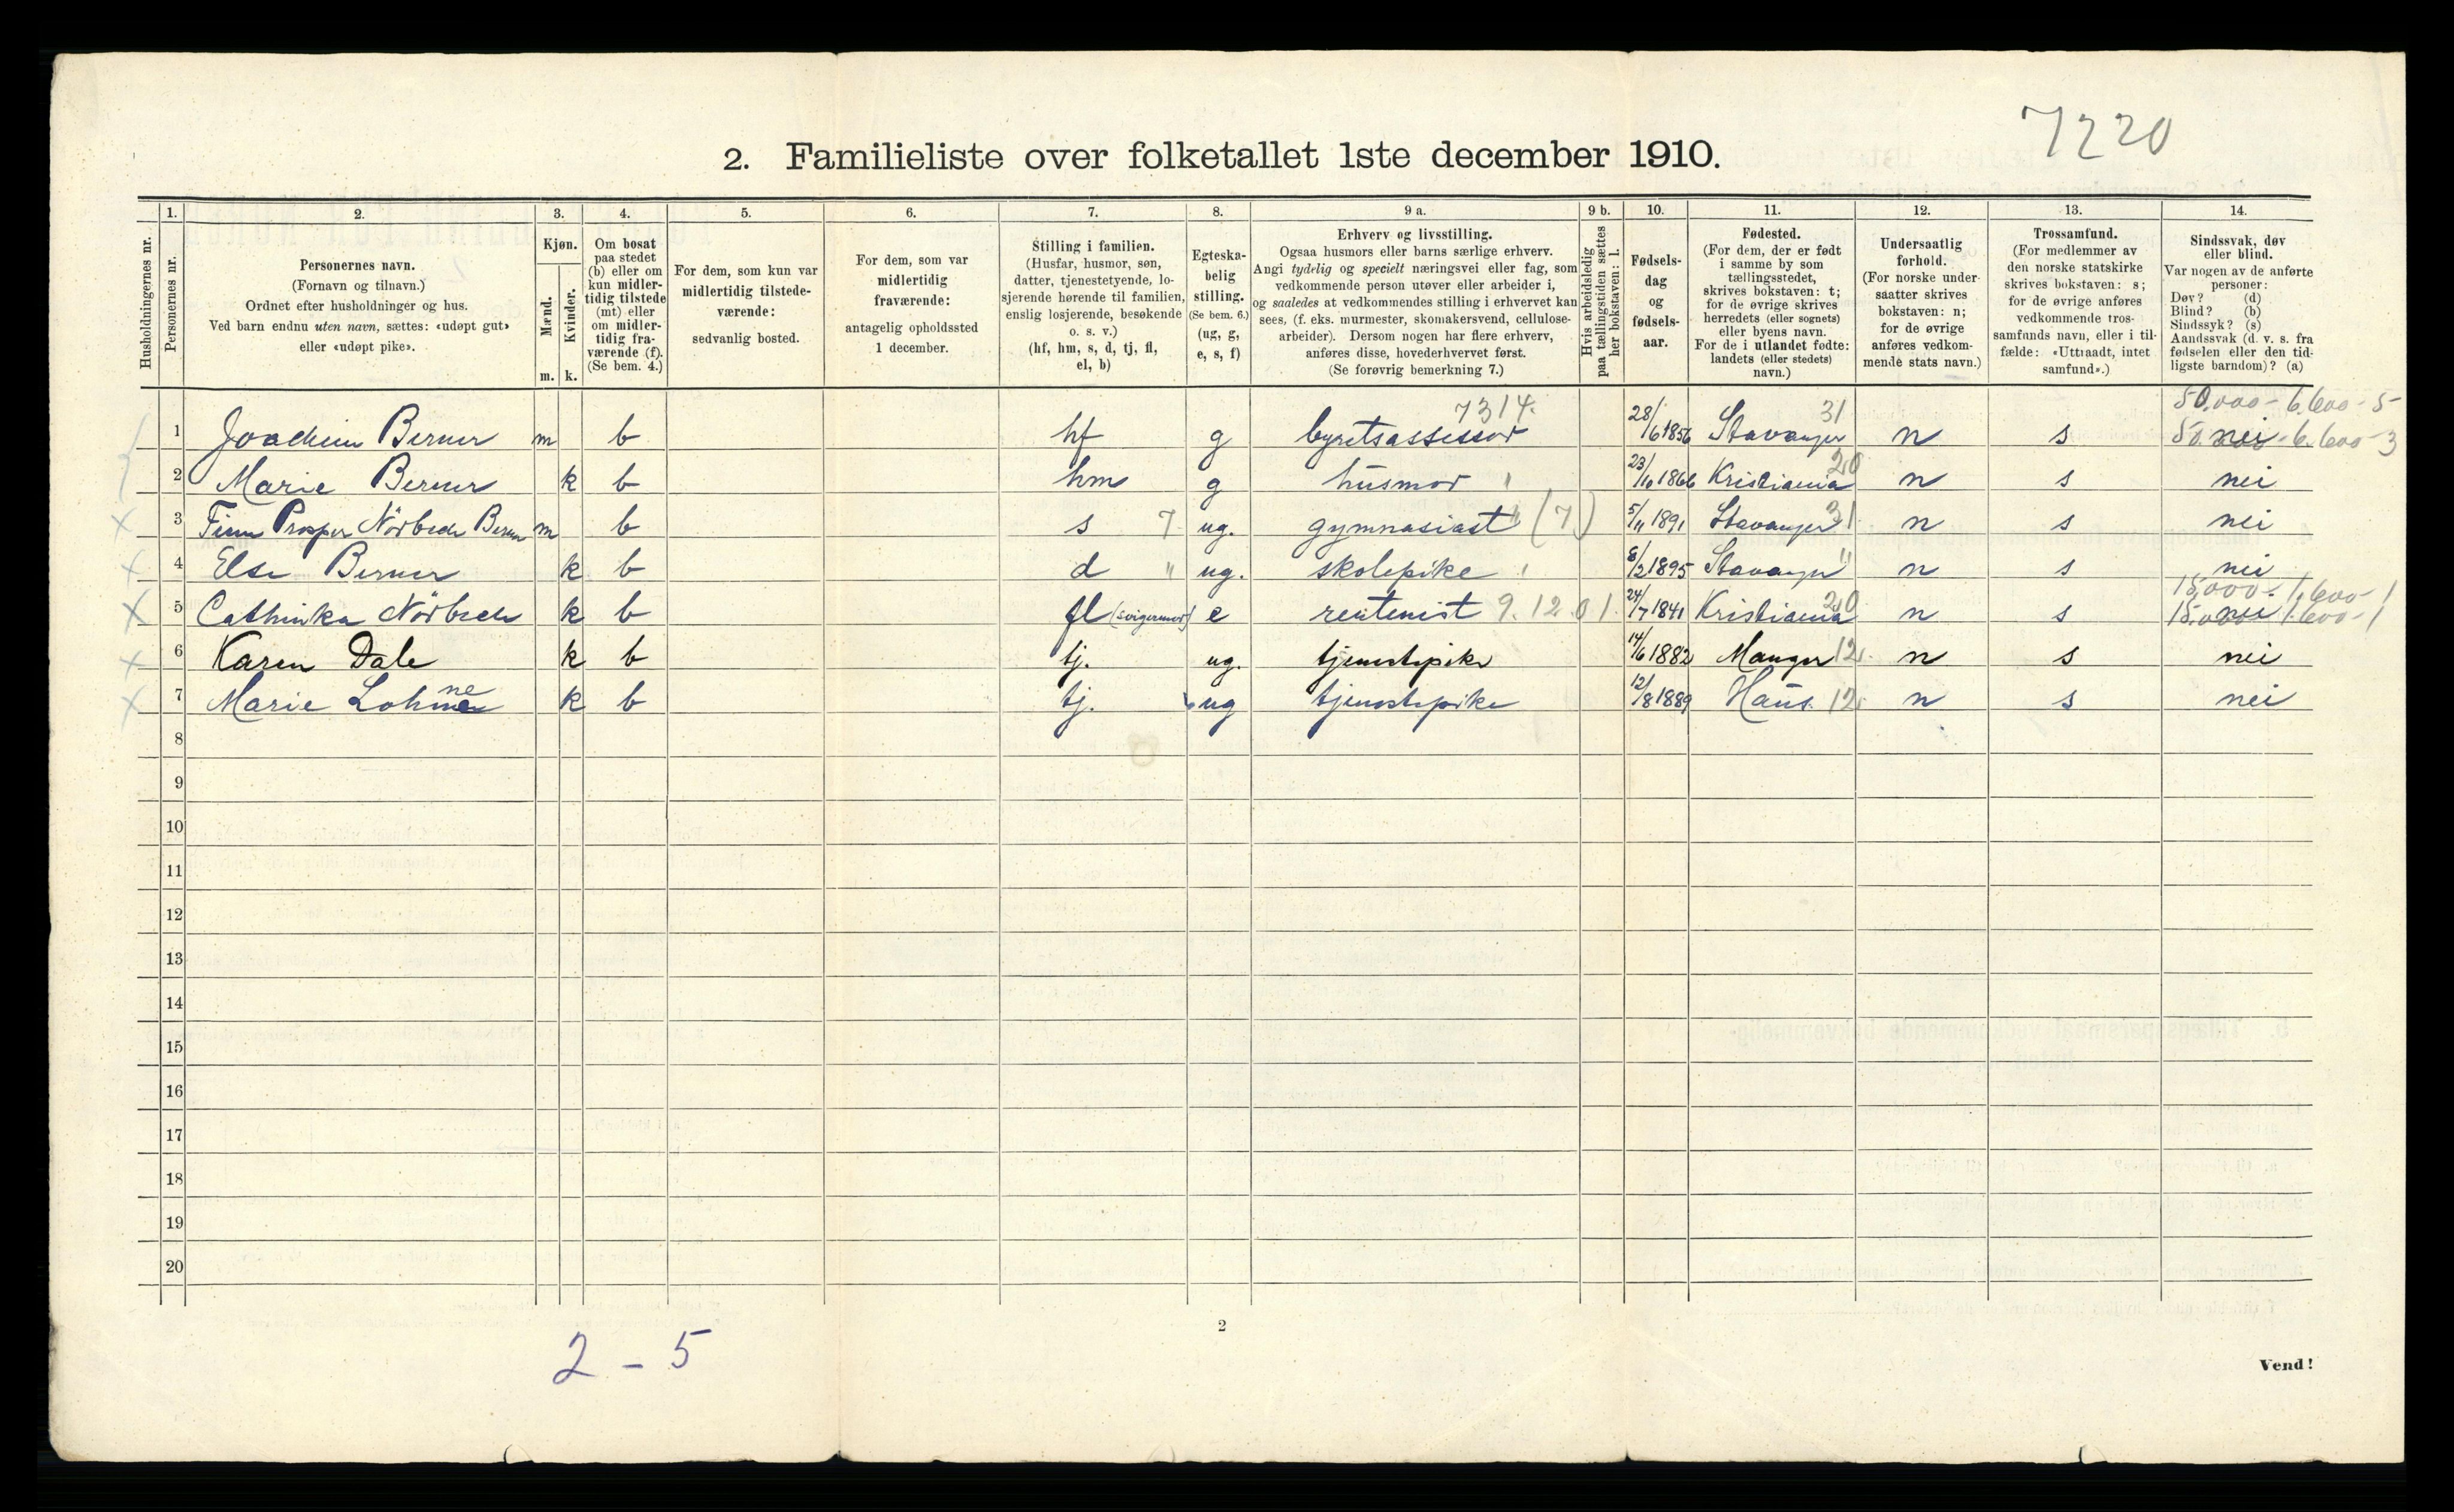 7220
2. Familieliste over folketallet 1ste december 1910.
1. 2. 3. 4. 5. 6. 7. 8. 9 a. 9 b. 10. 11. 12. 13. 14.
Husholdningernes nr.
Personernes nr.
Personernes navn.
(Fornavn og tilnavn.)
Ordnet efter husholdninger og hus.
Ved barn endnu uten navn, sættes: «udøpt gut»
eller «udøpt pike».
Kjøn.
Mænd.
Kvinder.
m. k.
Om bosat
paa stedet
(b) eller om
kun midler-
tidig tilstede
(mt) eller
om midler-
tidig fra-
værende (f).
(Se bem. 4.)
For dem, som kun var
midlertidig tilstede-
værende:
sedvanlig bosted.
For dem, som var
midlertidig
fraværende:
antagelig opholdssted
1 december.
Stilling i familien.
(Husfar, husmor, søn,
datter, tjenestetyende, lo-
sjerende hørende til familien,
enslig losjerende, besøkende
o. s. v.)
(hf, hm, s, d, tj, fl,
el, b)
Egteska-
belig
stilling.
(Se bem. 6.)
(ug, g,
e, s, f)
Erhverv og livsstilling.
Ogsaa husmors eller barns særlige erhverv.
Angi tydelig og specielt næringsvei eller fag, som
vedkommende person utøver eller arbeider i,
og saaledes at vedkommendes stilling i erhvervet kan
sees, (f. eks. murmester, skomakersvend, cellulose-
arbeider). Dersom nogen har flere erhverv,
anføres disse, hovederhvervet først.
(Se forøvrig bemerkning 7.)
Hvis arbeidsledig
paa tællingstiden sættes
her bokstaven: l.
Fødsels-
dag
og
fødsels-
aar.
Fødested.
(For dem, der er født
i samme by som
tællingsstedet,
skrives bokstaven: t;
for de øvrige skrives
herredets (eller sognets)
eller byens navn.
For de i utlandet fødte:
landets (eller stedets)
navn.)
Undersaatlig
forhold.
(For norske under-
saatter skrives
bokstaven: n;
for de øvrige
anføres vedkom-
mende stats navn.)
Trossamfund.
(For medlemmer av
den norske statskirke
skrives bokstaven: s;
for de øvrige anføres
vedkommende tros-
samfunds navn, eller i til-
fælde: «Uttraadt, intet
samfund».)
Sindssvak, døv
eller blind.
Var nogen av de anførte
personer:
Døv? (d)
Blind? (b)
Sindssyk? (s)
Aandssvak (d. v. s. fra
fødselen eller den tid-
ligste barndom)? (a)
7314. 31 50.000 - 6.600 - 5
1 Joachim Berner m b hf g byretsassessor 28/6 1856 Stavanger n s nei 50.000 - 6.600 - 3
2 Marie Berner k b hm g husmor " 23/10 1866 Kristiania 20 n s nei
3 Finn Prosper Nörbech Berner m b s 7 ug. gymnasiast " (7) 5/11 1891 Stavanger 31 n s nei
4 Else Berner k b d " ug. skolepike " 8/2 1895 Stavanger " n s nei
15,000 - 1,600 - 1
5 Cathinka Nörbech k b fl (svigermor) e rentenist 9.12.01. 24/7 1841 Kristiania 20 n s nei 15.000 1.600 - 1
6 Karen Dale k b tj. ug. tjenestepike 14/6 1882 Manger 12. n s nei
7 Marie Lohne k b tj. ug tjenestepike 12/8 1889 Haus. 12. n s nei
8
9
10
11
12
13
14
15
16
17
18
19
20
2
2 - 5
Vend!